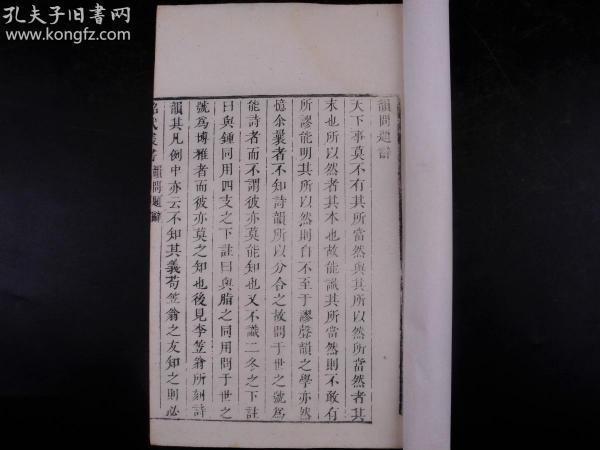 孔夫子旧书网
www.kongfz.com
韻問題辭
天下事莫不有其所當然與其所以然所當然者其
末也所以然者其本也故能識其所當然則不敢有
所謬能明其所以然則自不至于謬聲韻之學亦然
憶余曩者不知詩韻所以分合之故問于世之號爲
能詩者而不謂彼亦莫能知也又不識二冬之下註
曰與鍾同用四支之下註曰與脂之同用問于世之
號爲博雅者而彼亦莫之知也後見李笠翁所刻詩
韻其凡例中亦云不知其義苟笠翁之友知之則必
昭代叢書 韻問題辭